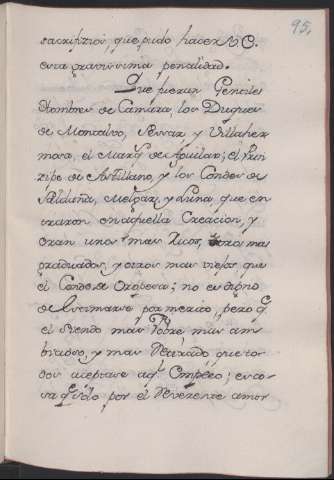 95,
sacrificios, que pudo hacer V.E.
esta gravissima penalidad.
Que fueran Gentiles
Hombres de Camara, los Duques
de Montalvo, Ferrar y Villaher
mosa, el Marq.s de Aguilar; el Prin
zipe de Astillano, y los Condes de
Saldaña, Melgar, y Luna que en
traron en aquella Creacion, y
eran unos mas Ricos, otros mas
graduados, y otros mas viejos que
el Conde de Oropesa; no es digno
de lastimarse por merito, pero q
el siendo mas Pobre mas am
bicioso, y mas Retirado que to
dos aceptase aq.l Empleo; es co
sa q solo por el Reverente amor